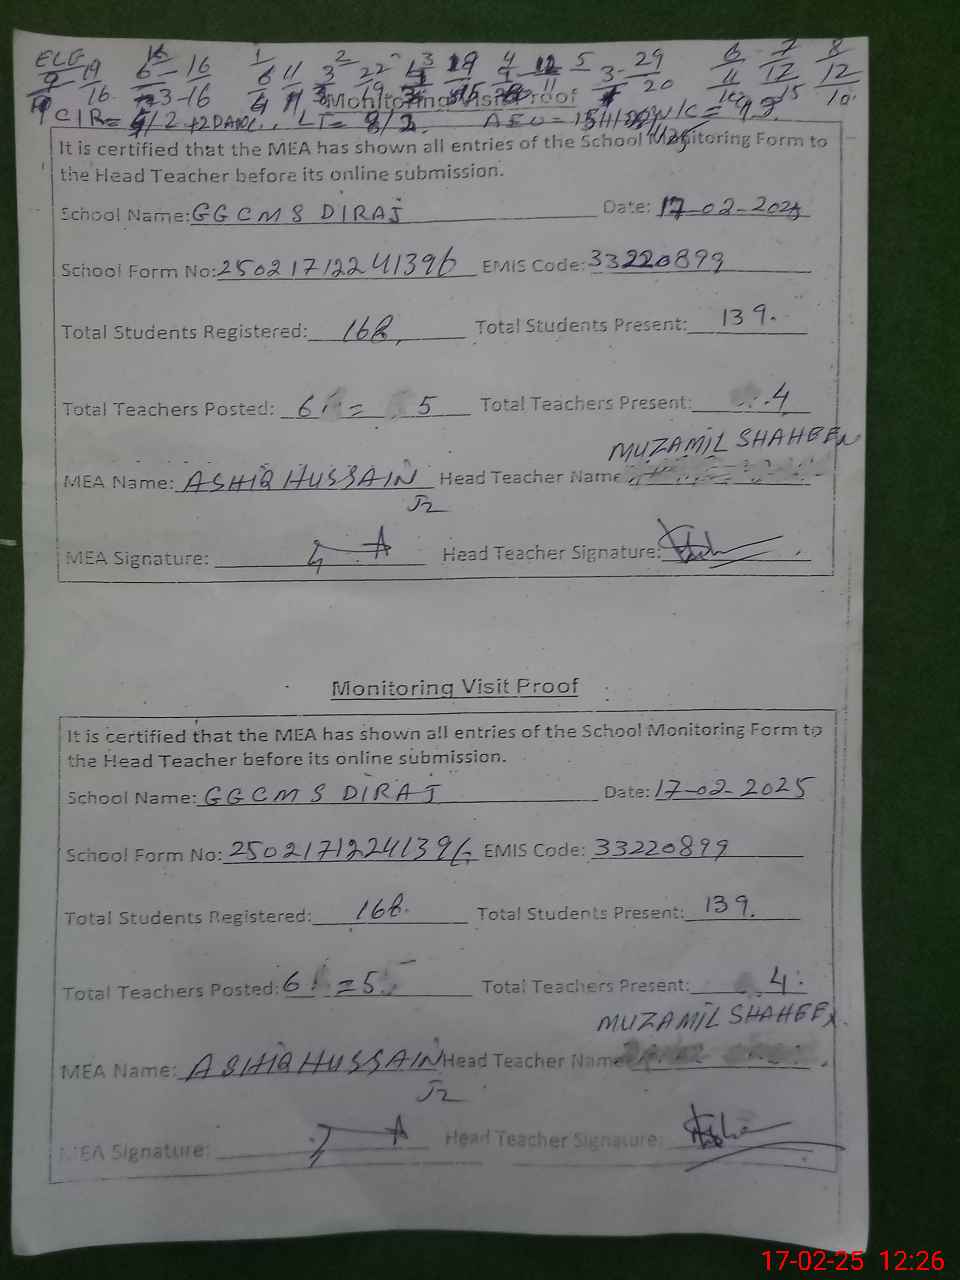 ELG
Monitoring Visit Proof
It is certified that the MEA has shown all entries of the School Monitoring Form to
the Head Teacher before its online submission.
School Name: GGCMS DIRAJ Date: 17-02-2025
School Form No: 250217122241396 EMIS Code: 33220899
Total Students Registered: 168 Total Students Present: 139.
Total Teachers Posted: 6 = 5 Total Teachers Present: 4
MUZAMIL SHAHEEN
MEA Name: ASHIQ HUSSAIN Head Teacher Name
MEA Signature: Head Teacher Signature:
Monitoring Visit Proof
It is certified that the MEA has shown all entries of the School Monitoring Form to
the Head Teacher before its online submission.
School Name: GGCMS DIRAJ Date: 17-02-2025
School Form No: 250217122241396 EMIS Code: 33220899
Total Students Registered: 168. Total Students Present: 139.
Total Teachers Posted: 6 = 5 Total Teachers Present: 4.
MUZAMIL SHAHEEN
MEA Name: ASHIQ HUSSAIN Head Teacher Name
MEA Signature: Head Teacher Signature:
17-02-25 12:26